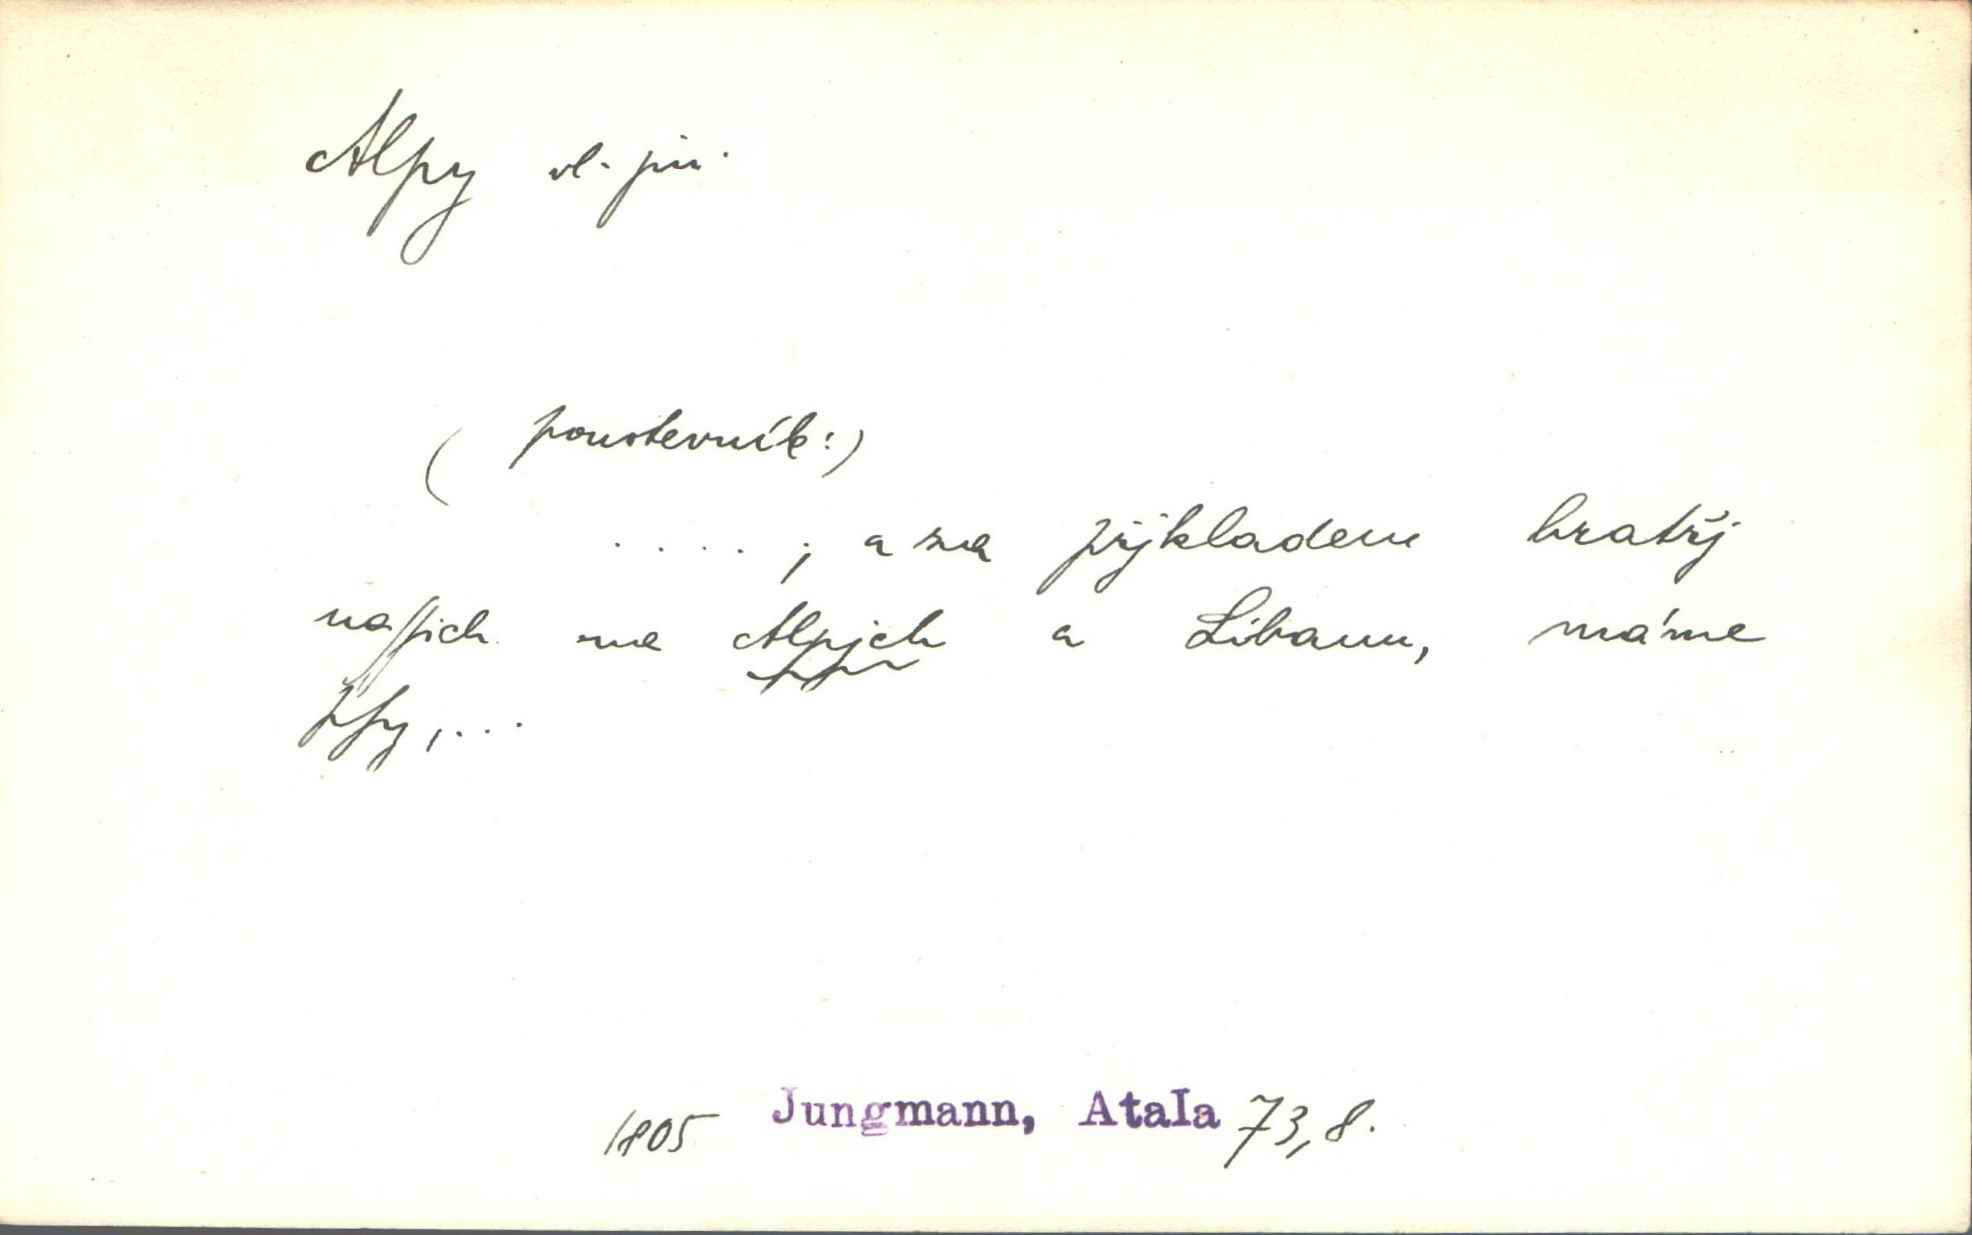 Alpy vl. jm.
( poustevník:)
. . . . ; a za přjkladem bratřj
naſſich na Alpjch a Libanu, máme
pſy, . . .
1805 Jungmann, Atala 73,8.